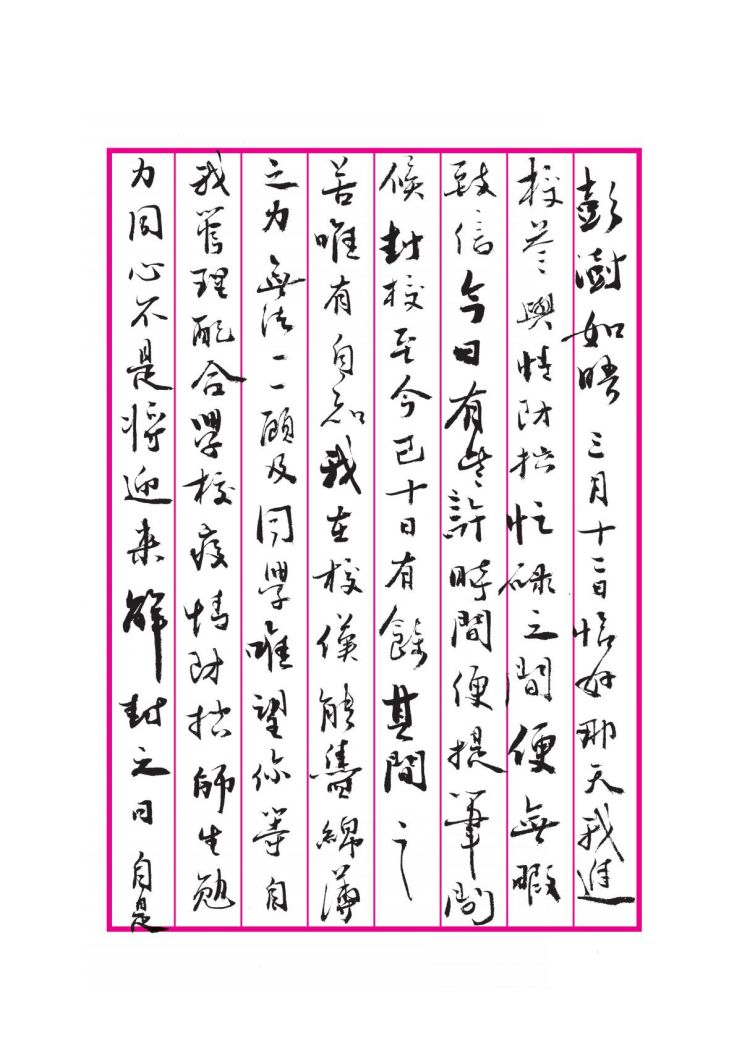 彭澍如晤 三月十二日恰好那天我進
校參與情防控忙碌之間便無暇
致信今日有些許時間便提筆問
候封校至今已十日有餘其間之
苦唯有自知我在校僅能盡綿薄
之力無法一一顧及同學唯望你等自
我管理配合學校疫情防控師生勉
力同心不是將迎来解封之日自是